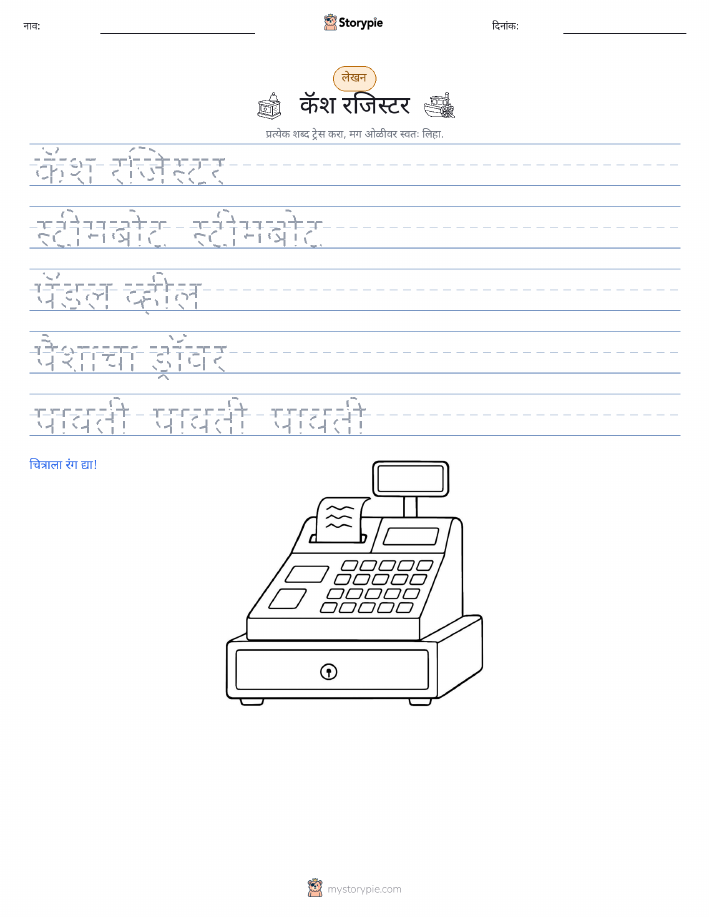 नाव:
Storypie
दिनांक:
लेखन
कॅश रजिस्टर
प्रत्येक शब्द ट्रेस करा, मग ओळीवर स्वतः लिहा.
कॅश रजिस्टर
स्टीमबोट स्टीमबोट
पॅडल व्हील
पैशाचा ड्रॉवर
पावती पावती पावती
चित्राला रंग द्या!
mystorypie.com